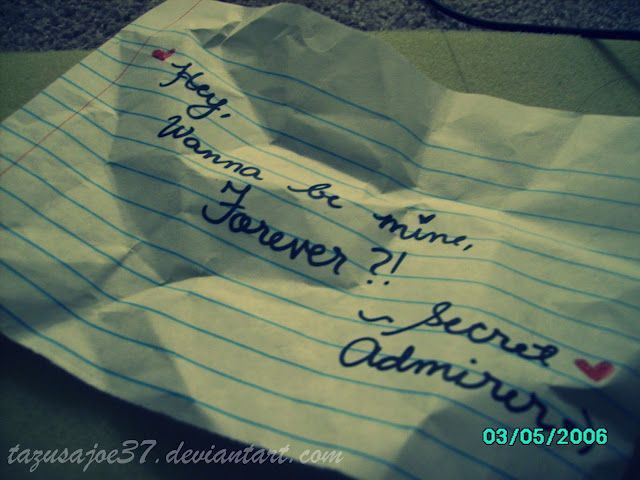 Hey,
Wanna be mine,
Forever?!
~ Secret
Admirer ;)
03/05/2006
tazusajoe37.deviantart.com